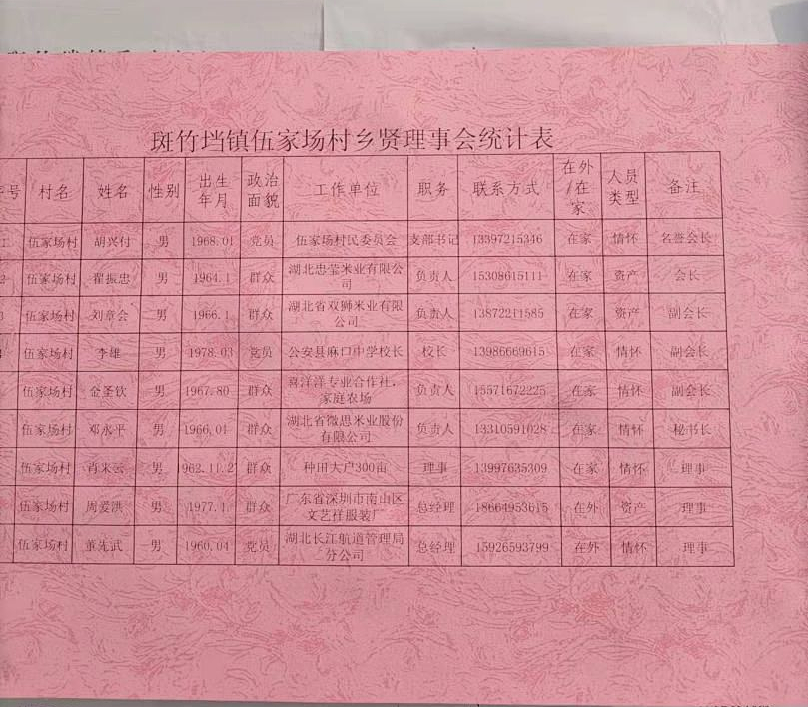 斑竹垱镇伍家场村乡贤理事会统计表
号 村名 姓名 性别 出生年月 政治面貌 工作单位 职务 联系方式 在外/在家 人员类型 备注
1 伍家场村 胡兴付 男 1968.01 党员 伍家场村民委员会 支部书记 13397215346 在家 情怀 名誉会长
2 伍家场村 翟振忠 男 1964.1 群众 湖北忠莹米业有限公司 负责人 15308615111 在家 资产 会长
3 伍家场村 刘章会 男 1966.1 群众 湖北省双狮米业有限公司 负责人 13872211585 在家 资产 副会长
伍家场村 李雄 男 1978.03 党员 公安县麻口中学校长 校长 13986669615 在家 情怀 副会长
伍家场村 金圣钦 男 1967.80 群众 喜洋洋专业合作社，家庭农场 负责人 15571672225 在家 情怀 副会长
伍家场村 邓永平 男 1966.01 群众 湖北省微思米业股份有限公司 负责人 13310591028 在家 情怀 秘书长
伍家场村 肖来云 男 962.11.2 群众 种田大户300亩 理事 13997635309 在家 情怀 理事
伍家场村 周爱洪 男 1977.1 群众 广东省深圳市南山区文艺祥服装厂 总经理 18664953615 在外 资产 理事
伍家场村 董先武 男 1960.04 党员 湖北长江航道管理局分公司 总经理 15926593799 在外 情怀 理事